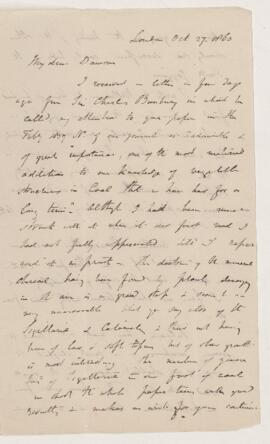 London Oct 27. 1860
My dear Dawson
I received a letter a few days
ago from Sir Charles Bunbury in which he
called my attention to your paper in the
Feby 1859 No of our journal as "admirable &
of great importance, one of the most material
additions to our knowledge of vegetable
structures in Coal that we have had for a
long time". Altho' I had been
struck with it when it was first read I
had not fully appreciated till I
read it in print. The doctrine of the mineral
charcoal having been formed by plants decaying
in the air is a grand step &
any
Sigillaria & Calamites & their not having
been of lax & soft tissue but of slow growth
is most interesting. The number of
of sigillaria in one foot of coal
in short the whole paper with good
results & makes us wish for your